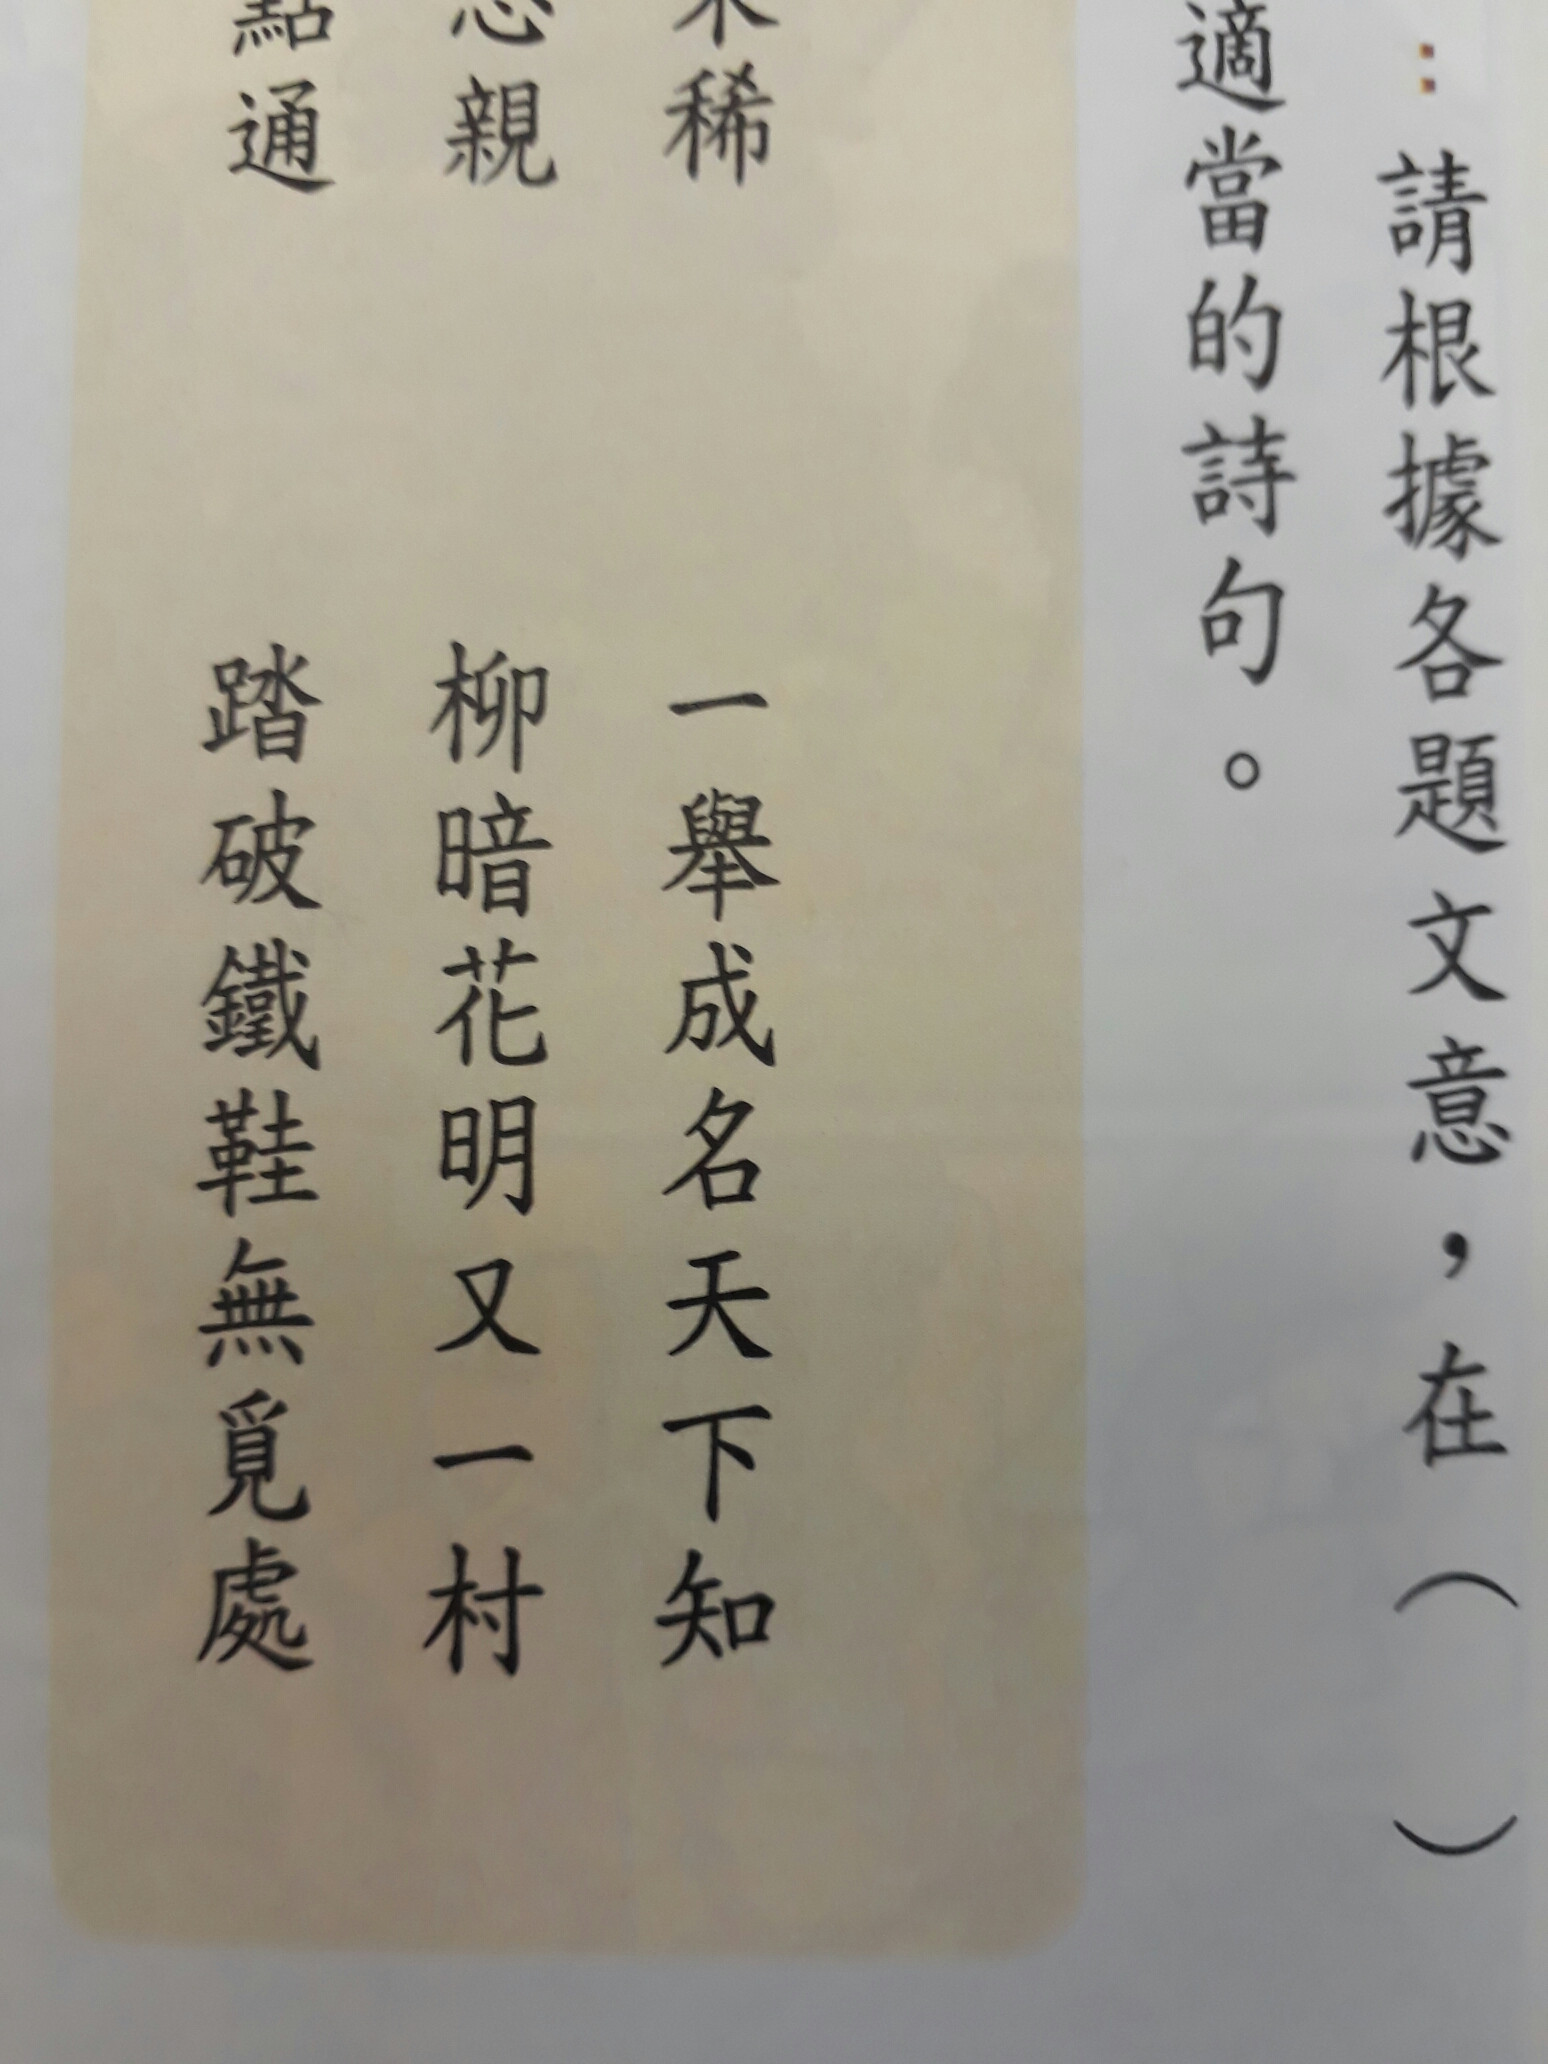 ：請根據各題文意，在（　）
適當的詩句。
稀
一舉成名天下知
親
柳暗花明又一村
點通
踏破鐵鞋無覓處